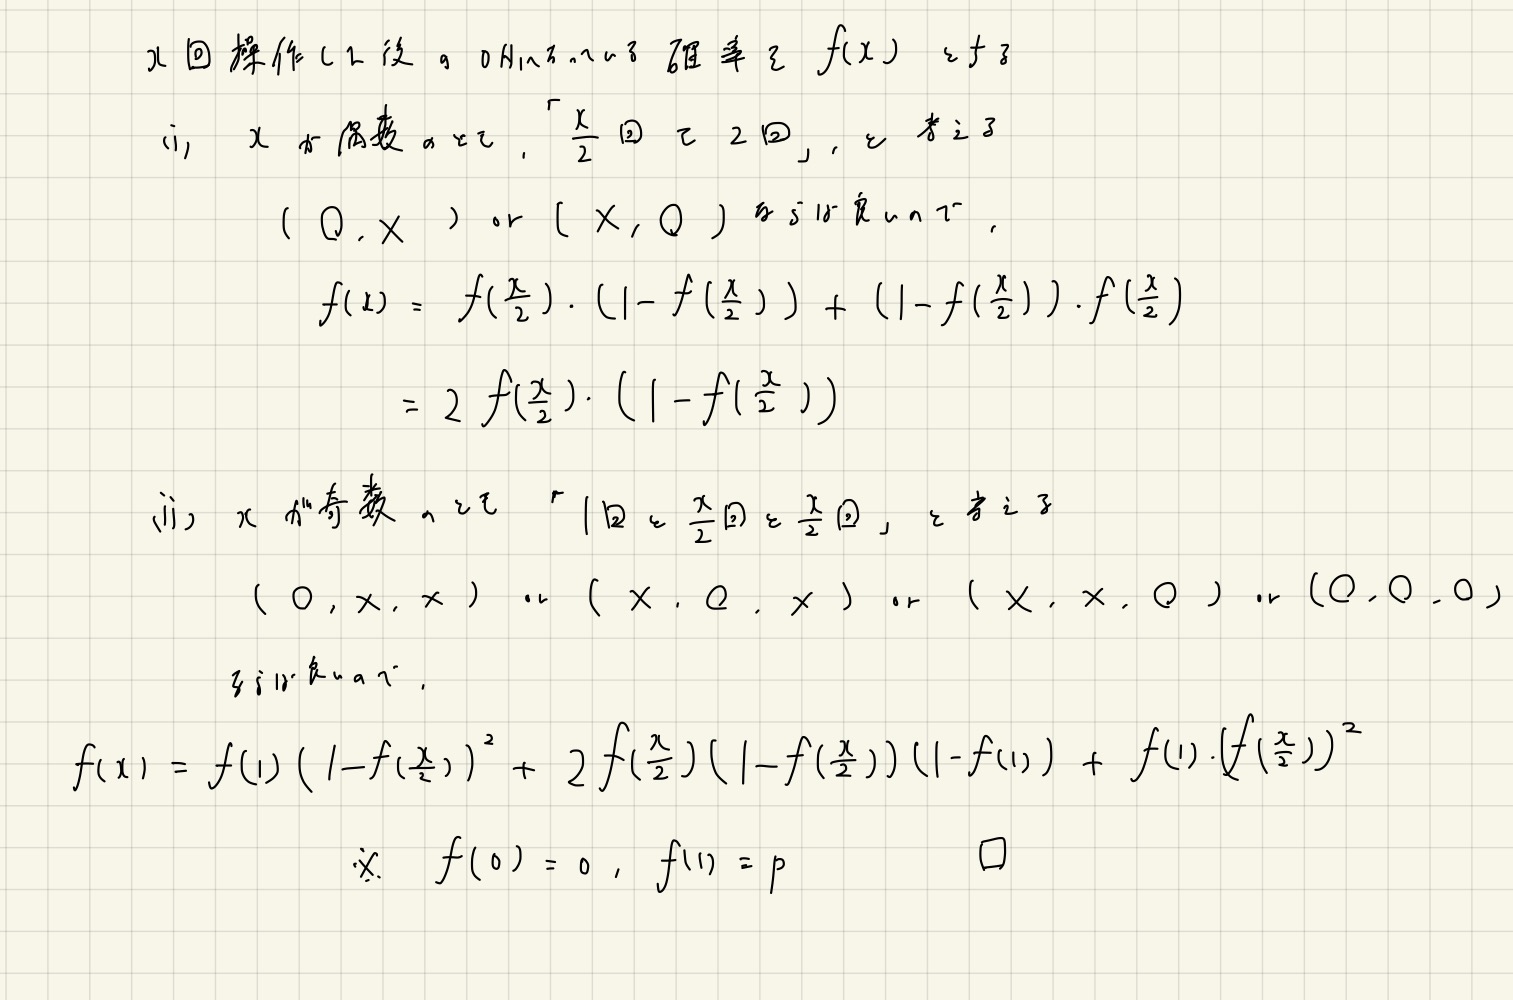 x回操作した後のAlnになっている確率を f(x) とする
(i) xが偶数のとき、「x/2回で2回」、と考える
(○, ×) or (×, ○) ならば良いので、
f(x) = f(x/2)・(1-f(x/2)) + (1-f(x/2))・f(x/2)
= 2 f(x/2)・(1-f(x/2))
(ii) xが奇数のとき「1回とx/2回とx/2回」と考える
(○, ×, ×) or (×, ○, ×) or (×, ×, ○) or (○, ○, ○)
ならば良いので、
f(x) = f(1)(1-f(x/2))² + 2f(x/2)(1-f(x/2))(1-f(1)) + f(1)・(f(x/2))²
※ f(0) = 0, f(1) = p □